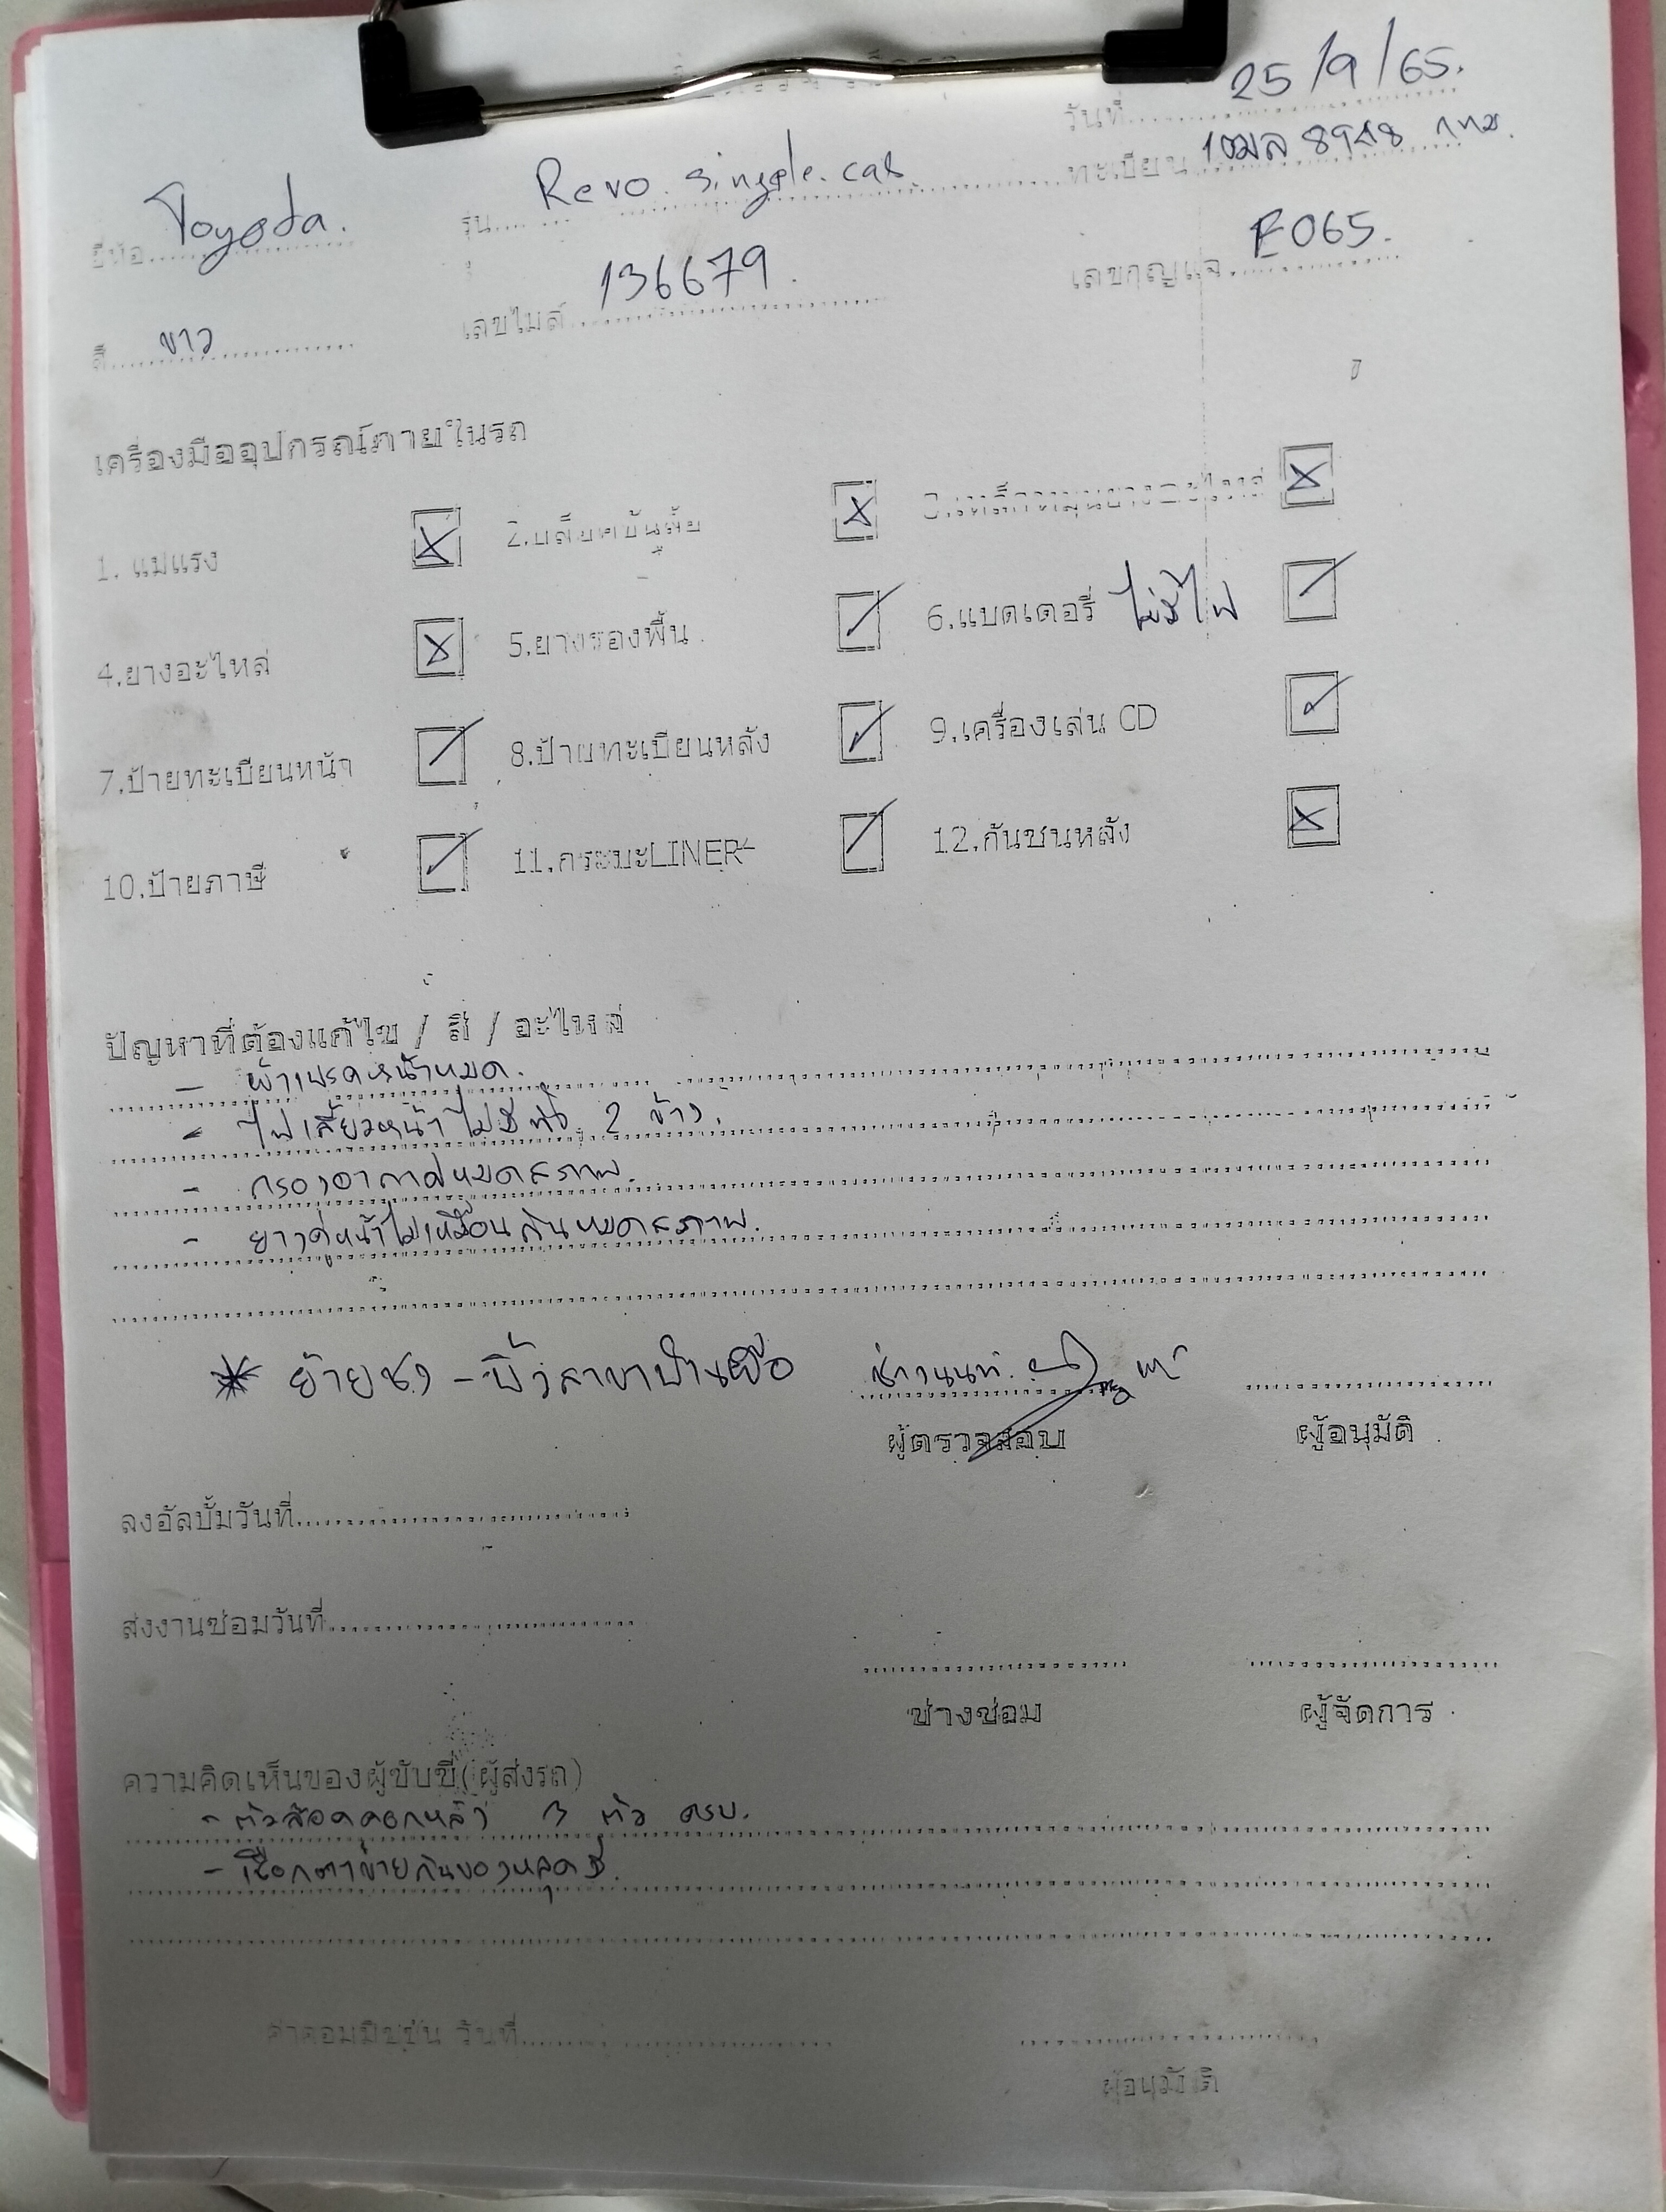 วันที่ 25/9/65.
ทะเบียน 8948 กทม.
ยี่ห้อ Toyoda. รุ่น Revo. single. cab
สี ขาว เลขไมล์ 136679. เลขกุญแจ E065.
เครื่องมืออุปกรณ์ภายในรถ
1. แม่แรง ☒ 2.บล็อคขันล้อ ☒ ☒
4.ยางอะไหล่ ☒ 5.ยางรองพื้น ☑ 6.แบตเตอรี่ ไม่มีไฟ ☑
7.ป้ายทะเบียนหน้า ☑ 8.ป้ายทะเบียนหลัง ☑ 9.เครื่องเล่น CD ☑
10.ป้ายภาษี ☑ 11.กระบะLINER ☑ 12.กันชนหลัง ☒
ปัญหาที่ต้องแก้ไข / สี / อะไหล่
- ผ้าเบรคหน้าหมด.
- ไฟเลี้ยวหน้าไม่มีทั้ง 2 ข้าง.
- กรองอากาศหมดสภาพ.
- ยางคู่หน้าไม่เหมือนกันหมดสภาพ.
ช่างนนท์.
ผู้ตรวจสอบ ผู้อนุมัติ
ลงอัลบั้มวันที่
ส่งงานซ่อมวันที่
ช่างซ่อม ผู้จัดการ
ความคิดเห็นของผู้ขับขี่(ผู้ส่งรถ)
- ตัวล้อคคอกหลัง 3 ตัว ครบ.
- เชือกตาข่ายกันของหลุดมี.
ค่าคอมมิชชั่น วันที่
ผู้อนุมัติ